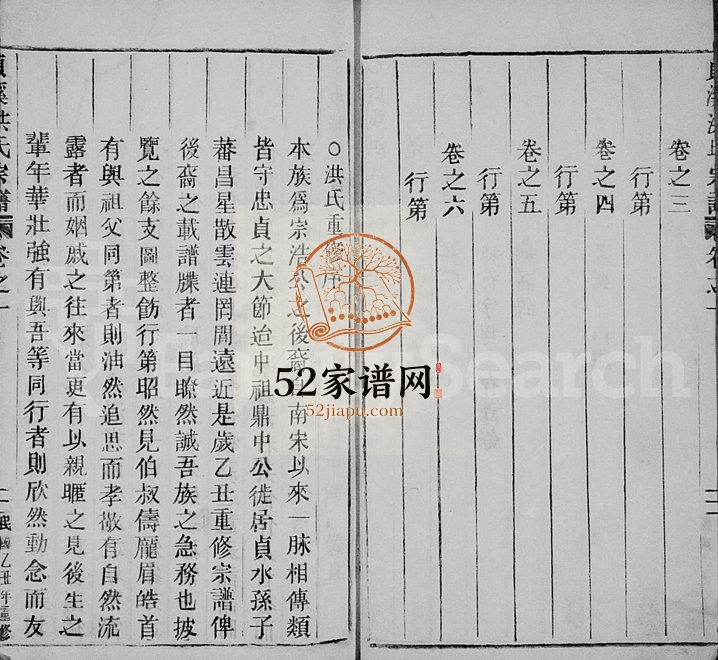 卷之三
行第
卷之四
行第
卷之五
行第
卷之六
行第
洪氏重修序
本族爲宗浩公之後裔自南宋以來一脉相傳類
皆守忠貞之大節迨中祖鼎中公徙居貞水孫子
蕃昌星散雲連罔間遠近是歲乙丑重修宗譜俾
後裔之載譜牒者一目瞭然誠吾族之急務也披
覽之餘支圖整飭行第昭然見伯叔儔龐眉皓首
有與祖父同第者則油然追思而孝敬有自然流
露者而姻戚之往來當更有以親暱之見後生之
輩年華壯強有與吾等同行者則欣然動念而友
溪洪氏宗譜
卷之一
一
民國乙丑年重修
52家谱网
52jiapu.com
Search